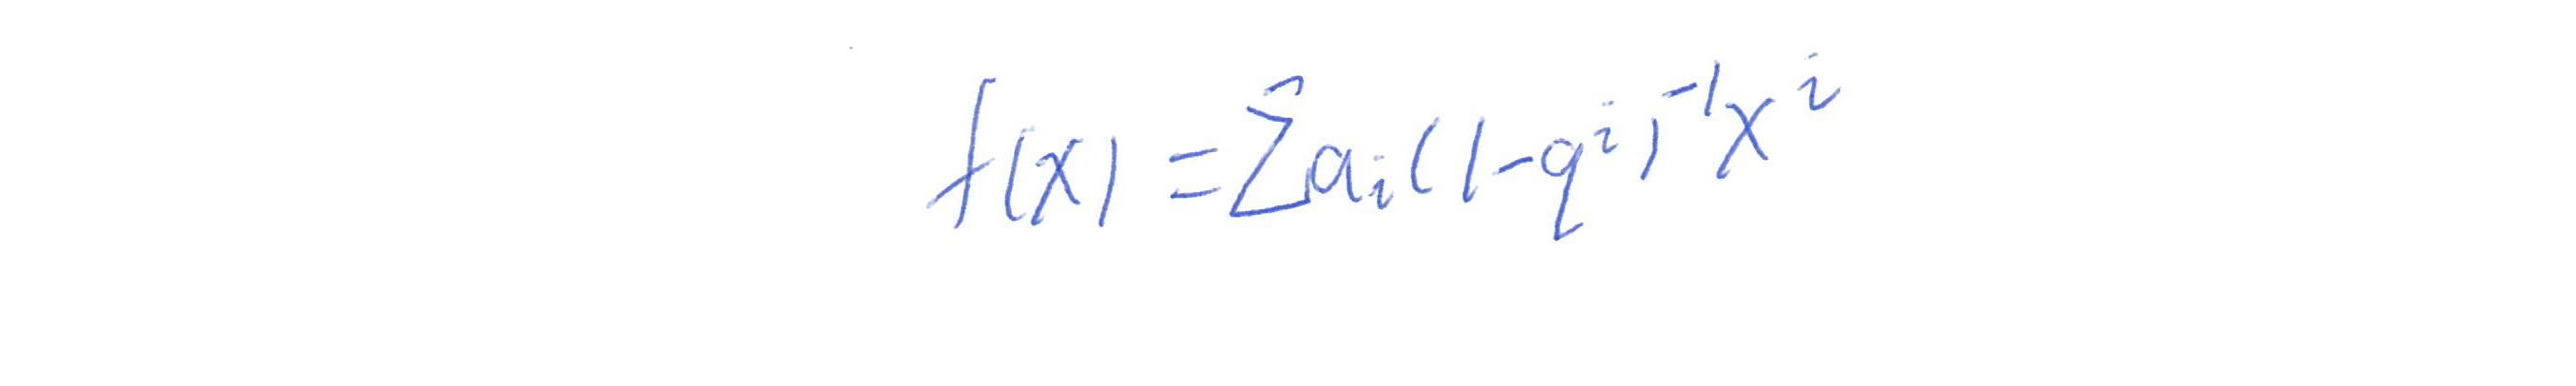 f(x) = ∑̂ a_i (1-q^i)^{-1} x^i